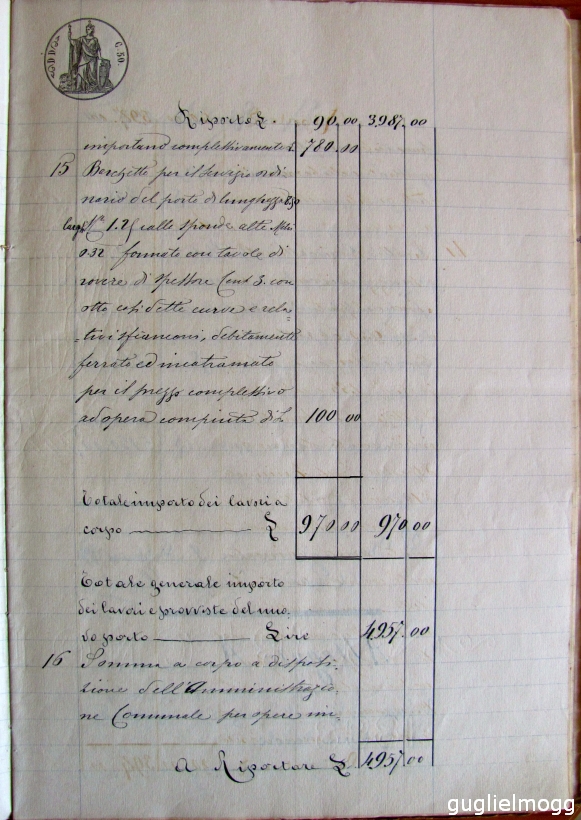 C. 50.
Riporto £. 90.00 3987.00
importano complessivamente £ 780.00
15 Barchetta per il servizio ordi
nario del porto di lunghezza
larga M. 1.25 alle sponde alte Metri
0.32 formata con tavole di
rovere di spessore Cent 3. con
otto così dette curve e rela=
=tivi sfianconi, debitamente
ferrato ed incatramato
per il prezzo complessivo
ad opera compiuta di £ 100 00
Totale importo dei lavori a
corpo £ 970.00 970.00
Totale generale importo
dei lavori e provviste del nuo.
vo porto Lire 4957.00
16 Somma a corpo a disposi.
zione dell'Amministrazio.
ne Comunale per opere im.
A Riportare £ 4957.00
guglielmogg